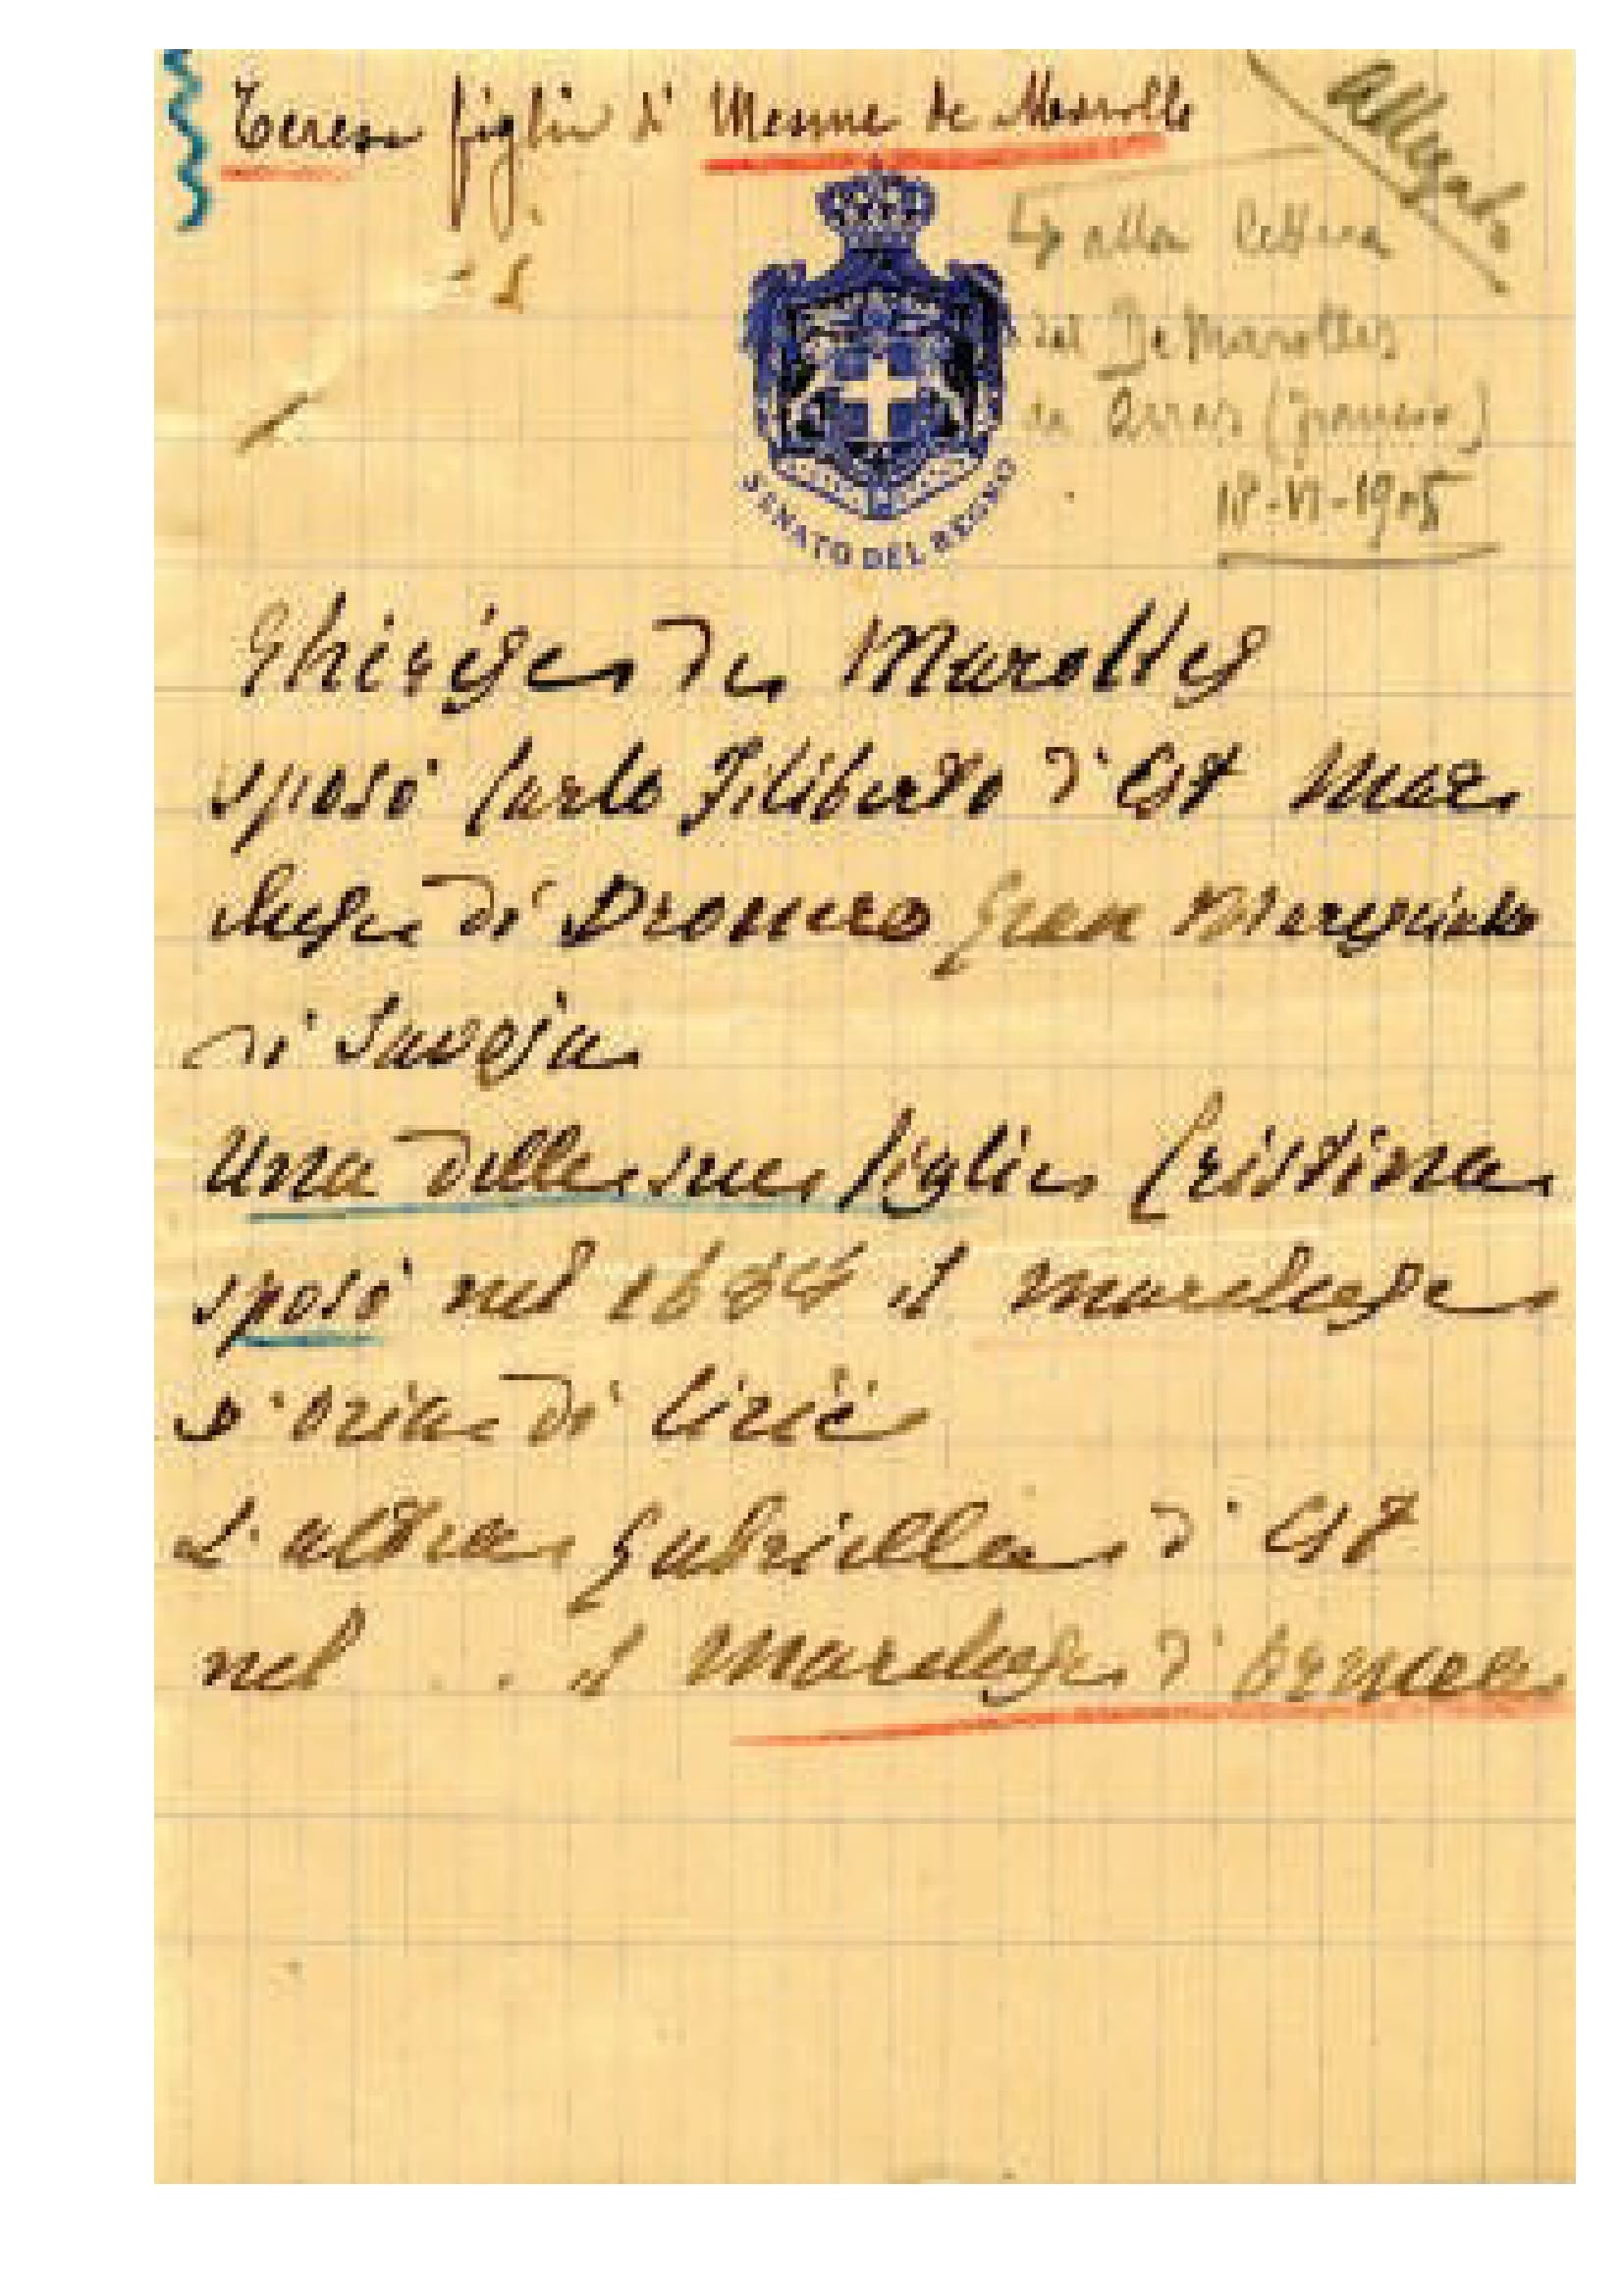 Teresa figlia di Mesme de Marolle
allegato
alla lettera
del De Marolles
da Arras (Francia)
18-VI-1905
SENATO DEL REGNO
de Marolles
sposò Carlo Filiberto d'Est Mar
chese di Dronero Gran
di Savoja
Una delle sue figlie Cristina
sposò nel il marchese
D'Oria di Ciriè
L'altra Gabriella d'Est
nel . . il Marchese d'Ormea